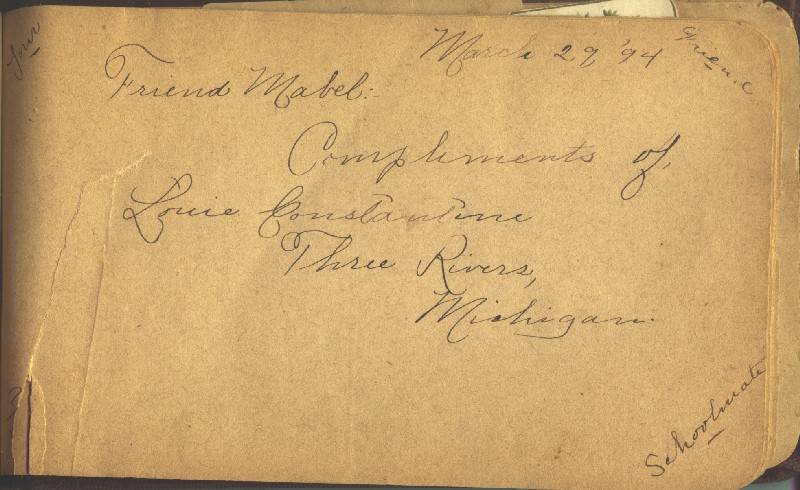 March 29, '94
Friend Mabel:-
Compliments of,
Louie Constantine
Three Rivers,
Michigan.
Your
Friend
Schoolmate